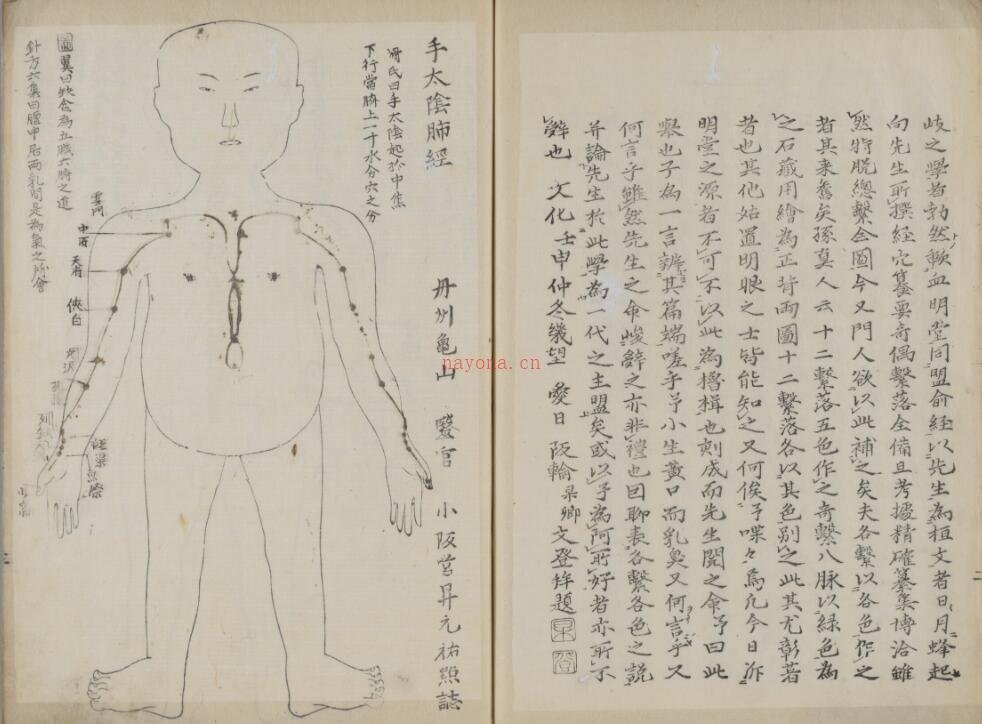 岐之學者勃然歃血明堂同盟俞経以先生為桓文者日月蜂起
向先生所撰経穴纂要奇偶繫落全備且考據精確纂集博洽雖
然特脱總繫合圖今又門人欲以此補之矣夫各繫以各色作之
者其来舊矣孫真人云十二繫落五色作之奇繫八脉以綠色為
之石藏用繪為正背兩圖十二繫落各以其色別之此其尤彰著
者也其他姑置明眼之士皆能知之又何俟予喋々焉凡今日泝
明堂之源者不可不以此為櫓楫也刻成而先生閲之命予曰此
擧也子為一言辨其篇端嗟乎予小生黄口而乳臭又何言乎又
何言乎雖然先生之命峻辭之亦非禮也因聊表各繫各色之説
并論先生於此學為一代之主盟矣或以予為阿所好者亦所不
辭也 文化壬申仲冬幾望 愛日 阪輪 杲卿 文登拜題
手太陰肺經
滑氏曰手太陰起於中焦
下行當臍上一寸水分穴之分
丹州龜山 醫官 小阪 昇元祐照誌
圖翼曰缺盆為五臓六腑之道
針方六集曰膻中居兩乳間是為氣之所會
雲門
中府
天府
俠白
尺沢
孔最
列缺
経渠
魚際
nayona.cn